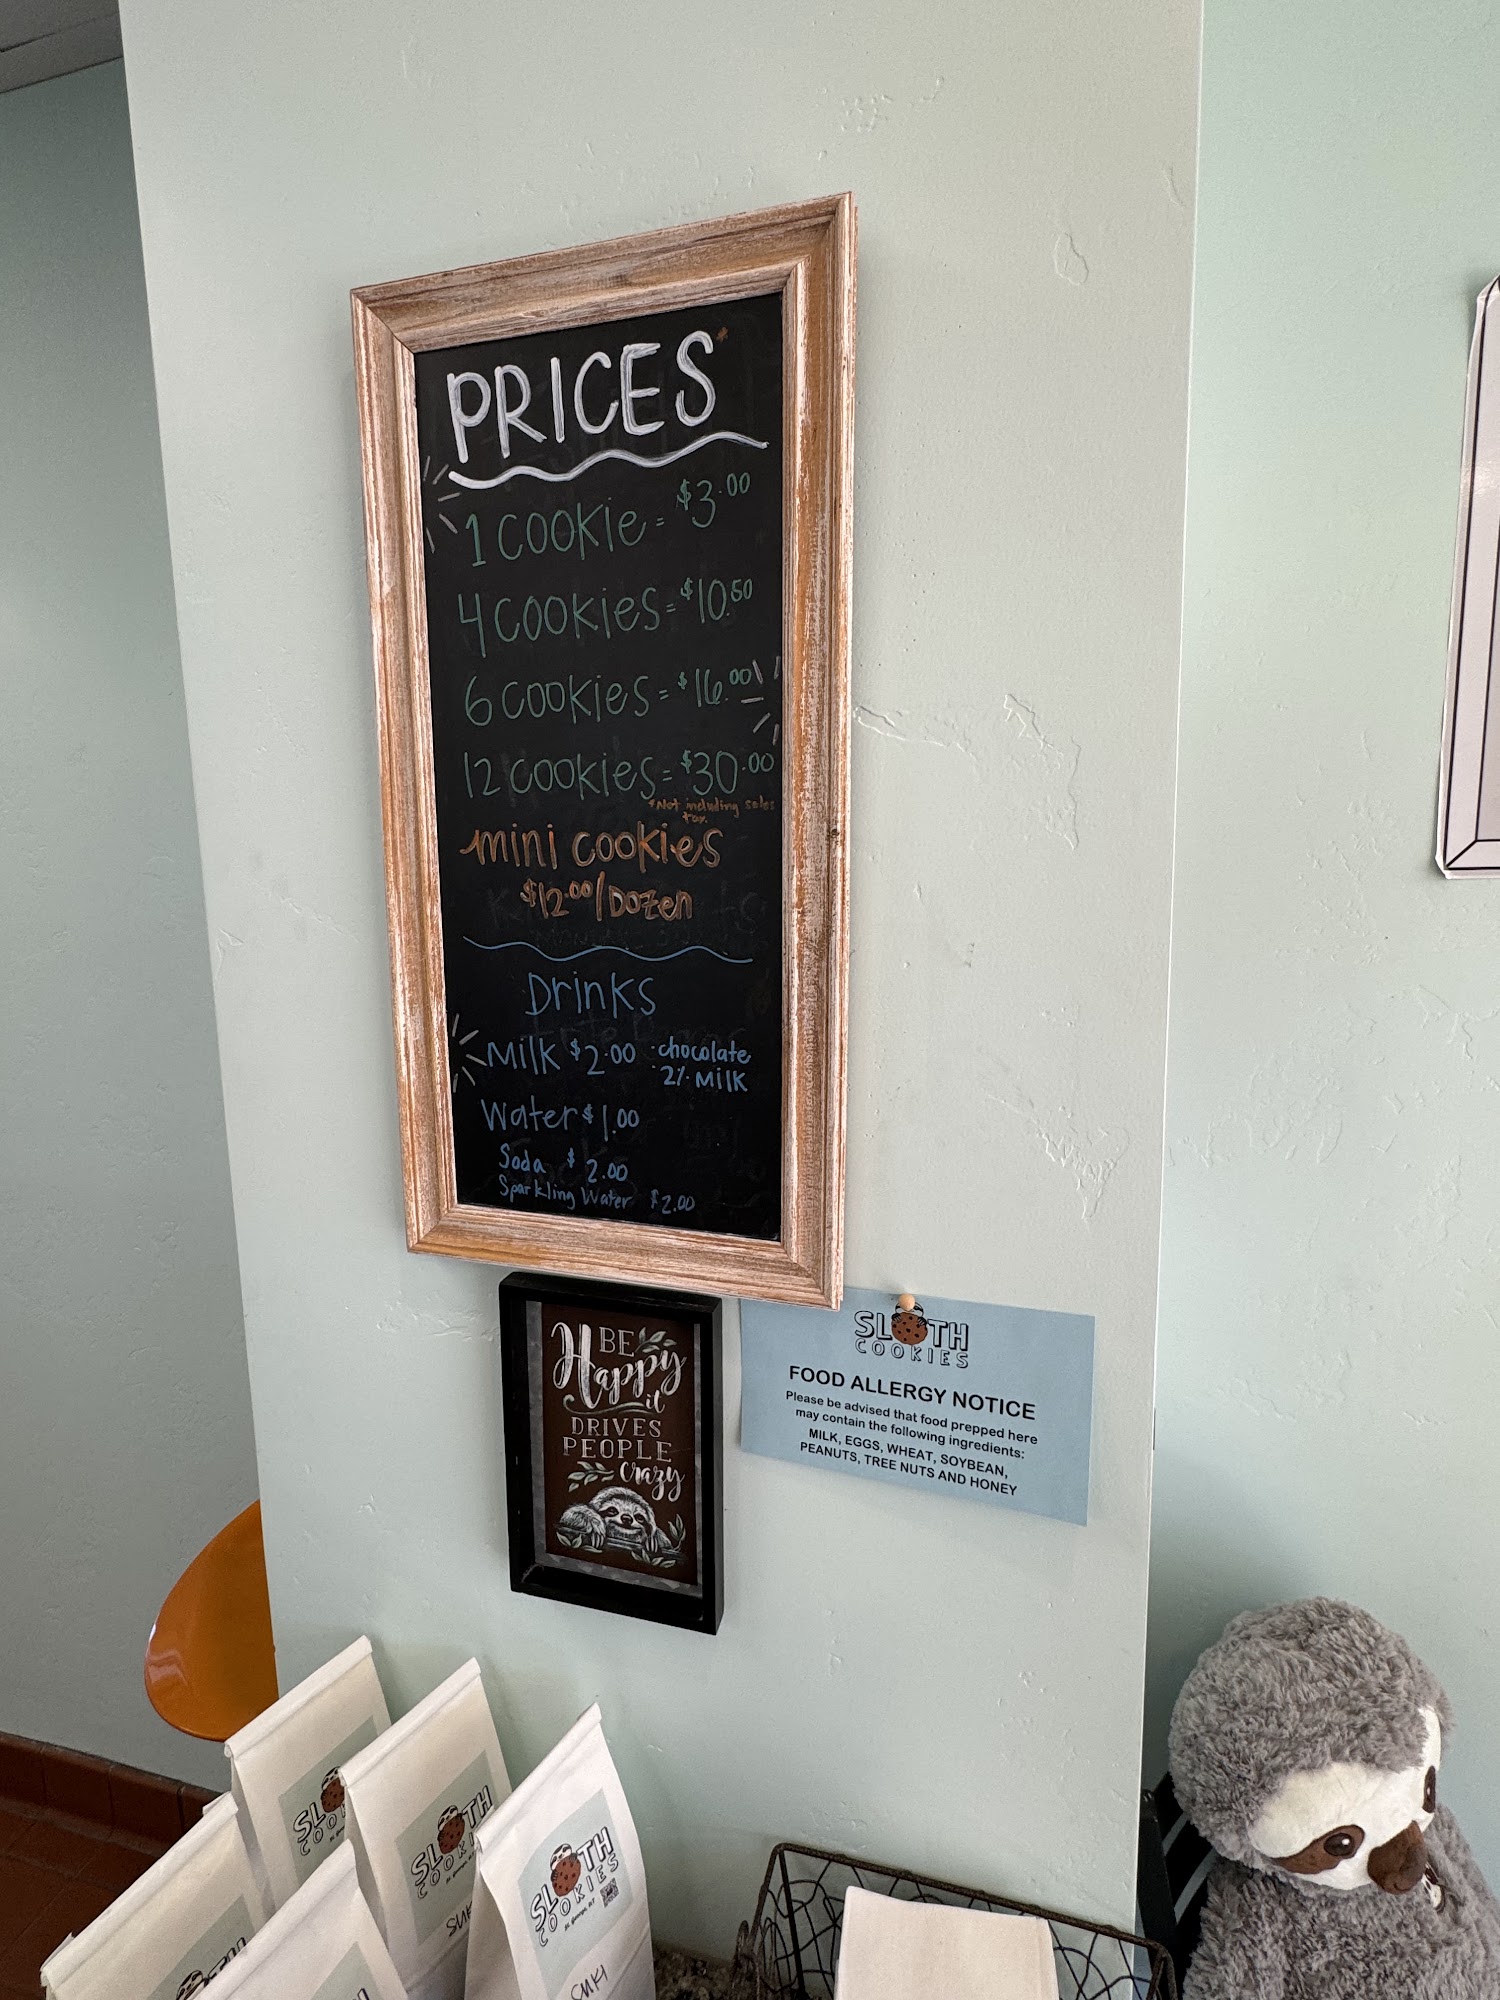 PRICES*
1 cookie = $3.00
4 cookies = $10.50
6 cookies = $16.00
12 cookies = $30.00
*Not including sales
tax.
mini cookies
$12.00/Dozen
Drinks
Milk $2.00 ·chocolate
·2% Milk
Water $1.00
Soda $2.00
Sparkling Water $2.00
BE
Happy
it
DRIVES
PEOPLE
crazy
SLOTH
COOKIES
FOOD ALLERGY NOTICE
Please be advised that food prepped here
may contain the following ingredients:
MILK, EGGS, WHEAT, SOYBEAN,
PEANUTS, TREE NUTS AND HONEY
SLOTH
COOKIES
St. George, UT
SUKI